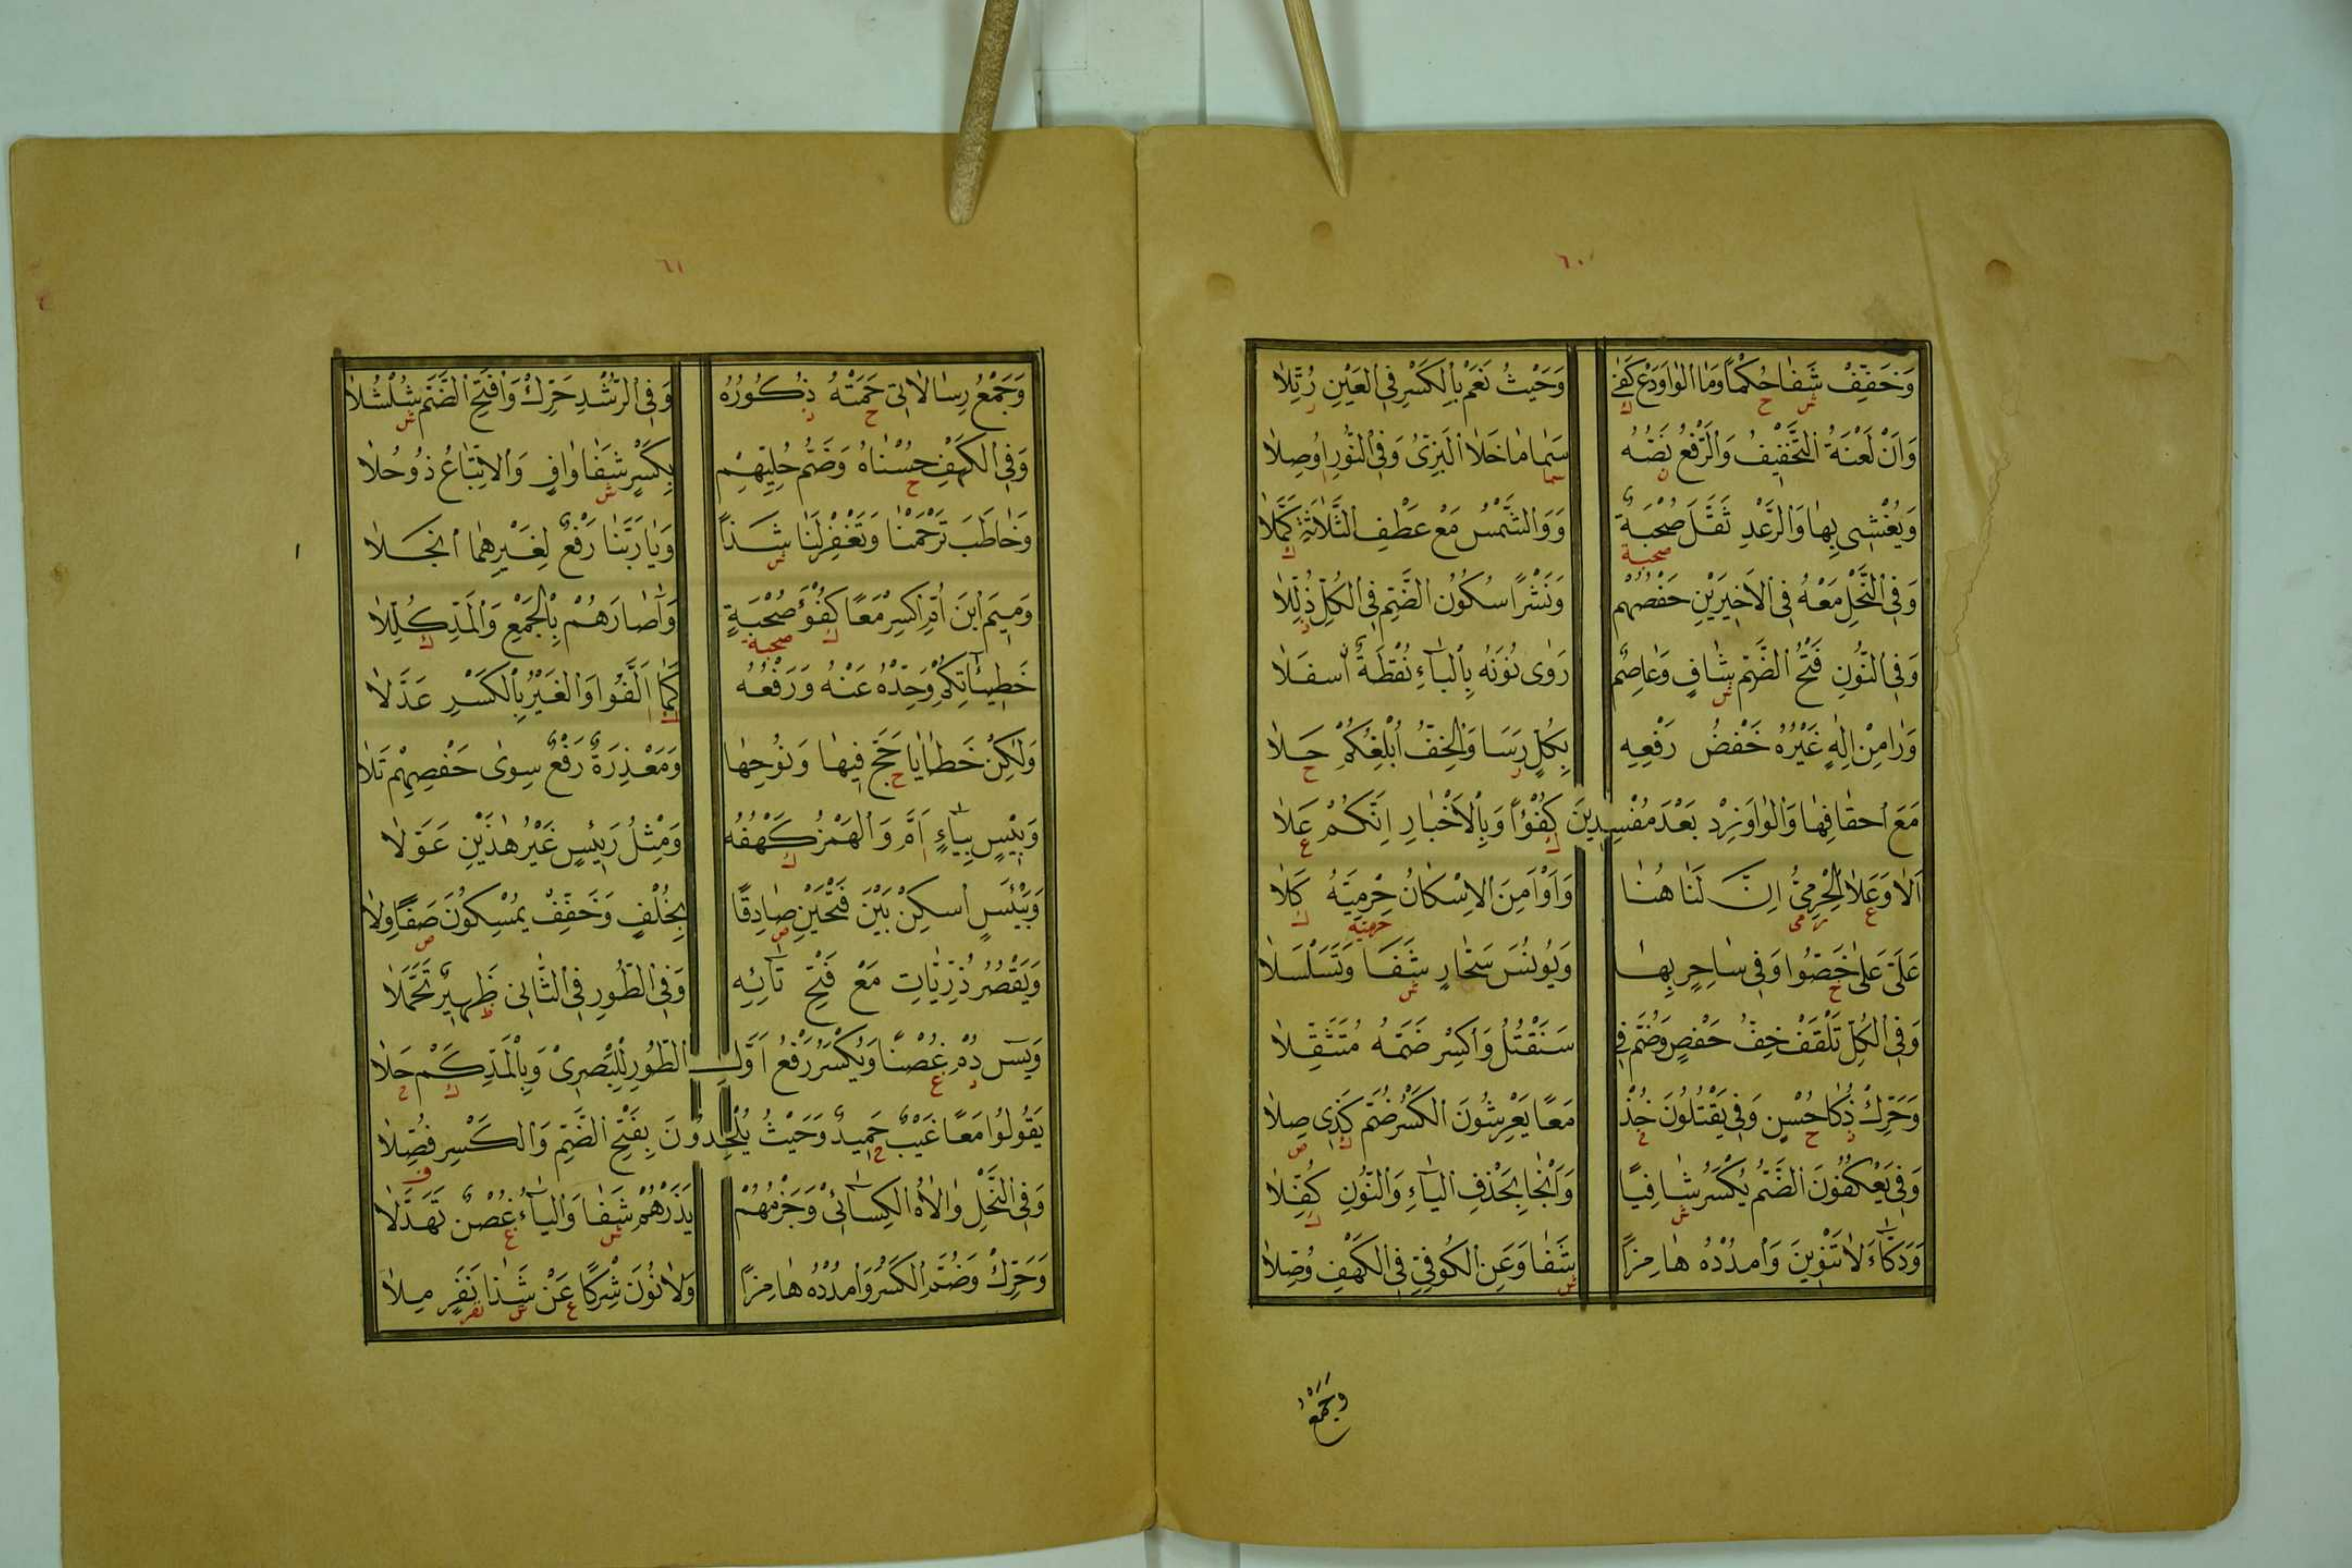 ٦٠
وَخَفِّفْ شَفَا حُكْمًا وَمَا الْوَاوَ دَعْ كَفَى وَحَيْثُ نَعَمْ بِالْكَسْرِ فِي الْعَيْنِ رُتِّلَا
ش ح ك ر
وَاَنْ لَعْنَةُ التَّخْفِيفُ وَالرَّفْعُ نَصُّهُ سَمَا مَا خَلَا الْبَزِّىْ وَفِي النُّورِ اُوصِلَا
ن سما ا
وَيُغْشِى بِهَا وَالرَّعْدِ ثَقَّلَ صُحْبَةٌ وَوَالشَّمْسُ مَعْ عَطْفِ الثَّلَاثَةِ كَمَّلَا
صحبة ك
وَفِي النَّحْلِ مَعْهُ فِي الْاَخِيرَيْنِ حَفْصُهُمْ وَنَشْرًا سُكُونُ الضَّمِّ فِي الْكُلِّ ذُلِّلَا
ذ
وَفِي النُّونِ فَتْحُ الضَّمِّ شَافٍ وَعَاصِمٌ رَوٰى نُونَهُ بِالْبَاءِ نُقْطَةٌ اَسْفَلَا
ش
وَرَا مِنْ اِلٰهٍ غَيْرُهُ خَفْضُ رَفْعِهِ بِكُلٍّ رَسَا وَالْخِفُّ اُبْلِغُكُمْ حَلَا
ر ح
مَعَ احْقَافِهَا وَالْوَاوَ زِدْ بَعْدَ مُفْسِدِينَ كُفْؤًا وَبِالْاَخْبَارِ اِنَّكُمْ عَلَا
ك ع
اَلَا وَعَلَا الْحِرْمِيُّ اِنَّ لَنَا هُنَا وَاَوْ اَمِنَ الْاِسْكَانُ حِرْمِيُّهُ كَلَا
ع حرمى حرميه ك
عَلَىَّ عَلٰى خَصُّوا وَفِي سَاحِرٍ بِهَا وَيُونُسَ سَحَّارٍ شَفَا وَتَسَلْسَلَا
خ ش
وَفِي الْكُلِّ تَلْقَفْ خِفُّ حَفْصٍ وَضُمَّ فِي سَنَقْتُلُ وَاكْسِرْ ضَمَّهُ مُتَثَقِّلَا
وَحَرِّكْ ذُكَا حُسْنٍ وَفِي يَقْتُلُونَ خُذْ مَعًا يَعْرِشُونَ الْكَسْرُ ضُمَّ كَذِى صِلَا
ذ ح خ ك ص
وَفِي يَعْكُفُونَ الضَّمُّ يُكْسَرُ شَافِيًا وَاَنْجَا بِحَذْفِ الْيَاءِ وَالنُّونِ كُفِّلَا
ش ك
وَدَكَّاءَ لَا تَنْوِينَ وَامْدُدْهُ هَامِزًا شَفَا وَعَنِ الْكُوفِيِّ فِي الْكَهْفِ وُصِّلَا
ش
وَجَمْعُ
٦١
وَجَمْعُ رِسَالَاتِى حَمَتْهُ ذُكُورُهُ وَفِي الرُّشْدِ حَرِّكْ وَافْتَحِ الضَّمَّ شُلْشُلَا
ح ذ ش
وَفِي الْكَهْفِ حُسْنَاهُ وَضَمُّ حُلِيِّهِمْ بِكَسْرٍ شَفَا وَافٍ وَالْاِتْبَاعُ ذُو حُلَا
ح ش
وَخَاطَبَ تَرْحَمْنَا وَتَغْفِرْ لَنَا شَذًا وَيَا رَبَّنَا رَفْعٌ لِغَيْرِهِمَا انْجَلَا
ش
وَمِيمَ ابْنَ اُمَّ اكْسِرْ مَعًا كُفْؤَ صُحْبَةٍ وَاٰصَارَهُمْ بِالْجَمْعِ وَالْمَدِّ كُلِّلَا
ك صحبة ك
خَطِيئَاتِكُمْ وَحِّدْهُ عَنْهُ وَرَفْعُهُ كَمَا اَلَّفُوا وَالْغَيْرُ بِالْكَسْرِ عَدَّلَا
ك ا
وَلٰكِنْ خَطَايَا حَجَّ فِيهَا وَنُوحِهَا وَمَعْذِرَةٌ رَفْعٌ سِوٰى حَفْصِهِمْ تَلَا
ح
وَبِيسٍ بِيَاءٍ اَمَّ وَالْهَمْزُ كَهْفُهُ وَمِثْلُ رَئِيسٍ غَيْرُ هٰذَيْنِ عَوَّلَا
ا ك
وَبَيْئَسٍ اسْكِنْ بَيْنَ فَتْحَيْنِ صَادِقًا بِخُلْفٍ وَخَفِّفْ يُمْسِكُونَ صَفَا وِلَا
ص ص
وَيَقْصُرُ ذُرِّيَّاتِ مَعْ فَتْحِ تَائِهِ وَفِي الطُّورِ فِي الثَّانِى ظَهِيرٌ تَحَمَّلَا
ظ
وَيٰسٓ دُمْ غُصْنًا وَيُكْسَرُ رَفْعُ اَوَّلِ الطُّورِ لِلْبَصْرِىْ وَبِالْمَدِّ كَمْ حَلَا
د غ ك ح
يَقُولُوا مَعًا غَيْبٌ حَمِيدٌ وَحَيْثُ يُلْحِدُونَ بِفَتْحِ الضَّمِّ وَالْكَسْرِ فُصِّلَا
ح ف
وَفِي النَّحْلِ وَالَاهُ الْكِسَائِىْ وَجَزْمُهُمْ يَذَرْهُمْ شَفَا وَالْيَاءُ غُصْنٌ تَهَدَّلَا
ش غ
وَحَرِّكْ وَضُمَّ الْكَسْرَ وَامْدُدْهُ هَامِزًا وَلَا نُونَ شِرْكًا عَنْ شَذَا نَفَرٍ مِلَا
ع ش نفر